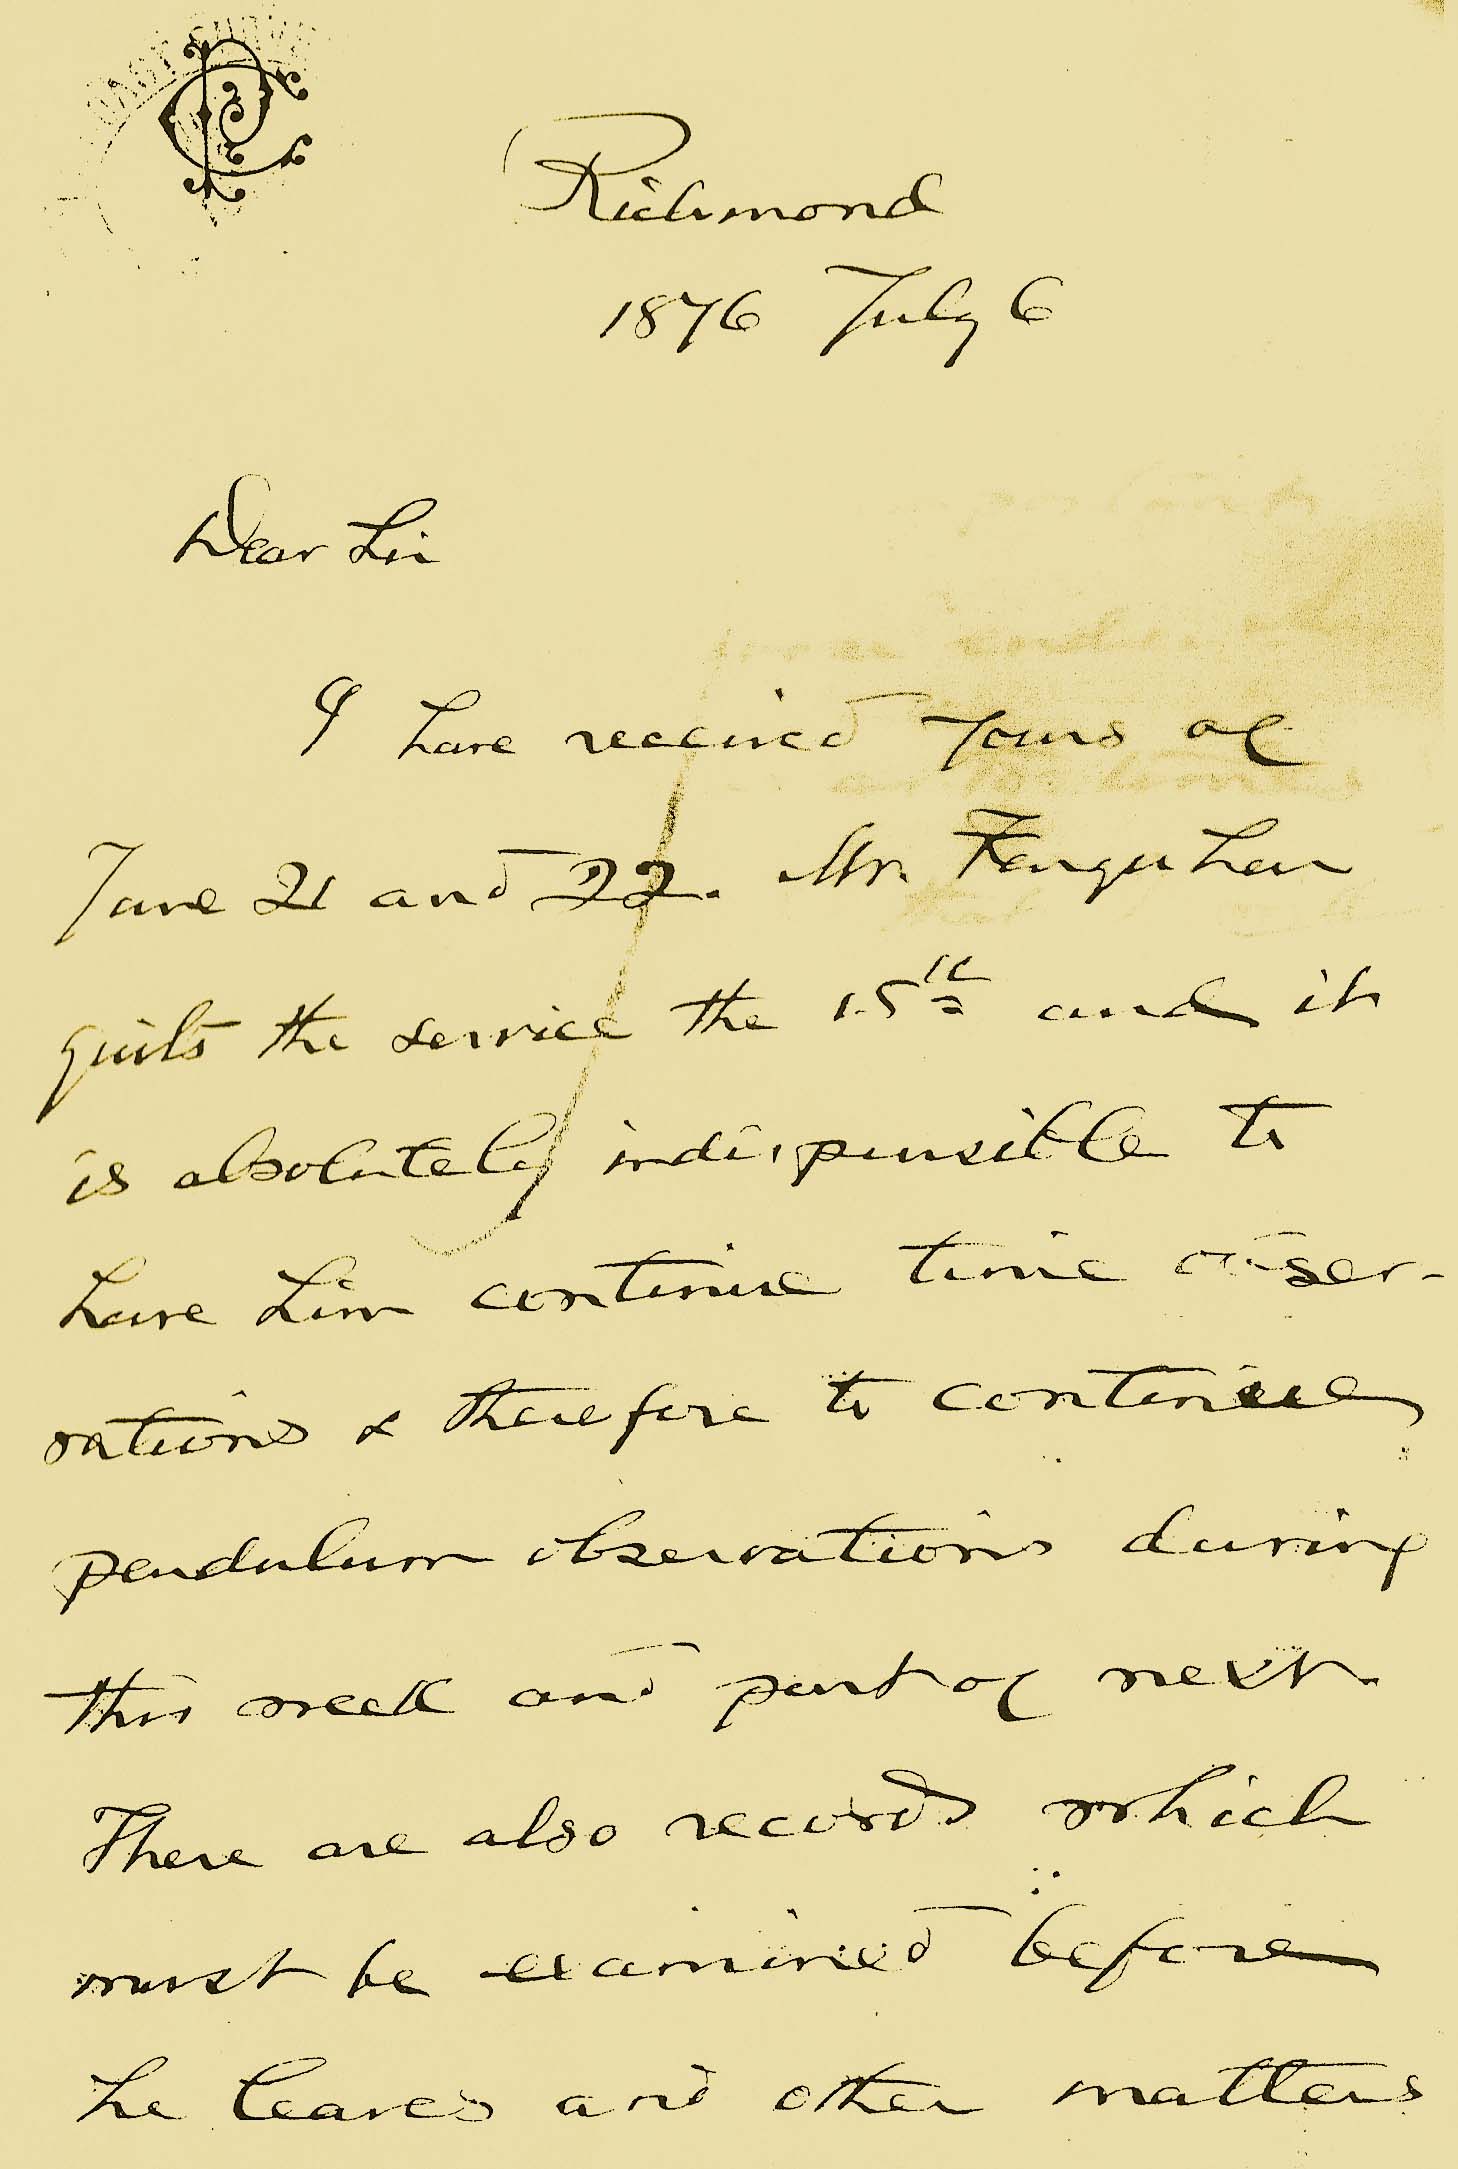 COAST SURVEY
Richmond
1876 July 6
Dear Sir
I have received yours of
June 21 and 22. Mr. Farquhar
quits the service the 15th and it
is absolutely indispensible to
have him continue time obser-
vations & therefore to continue
pendulum observations during
this week and part of next.
There are also records which
must be examined before
he leaves and other matters